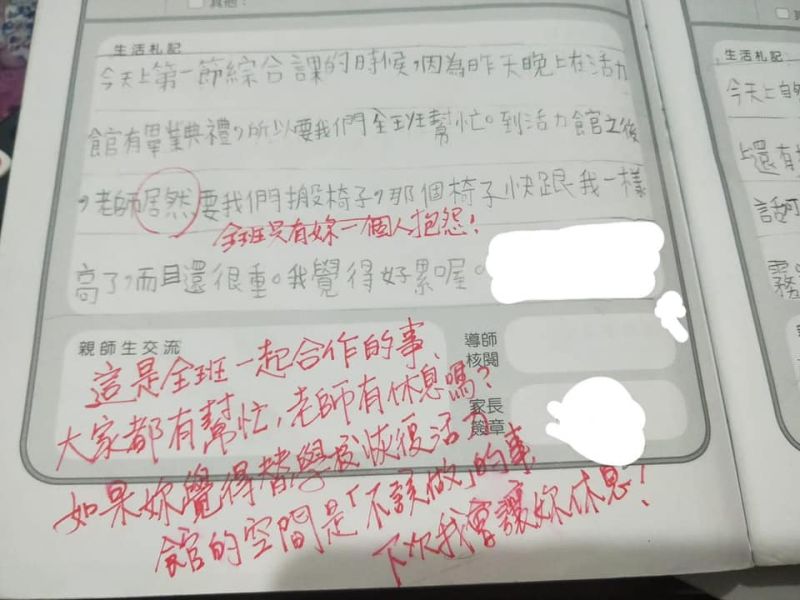 其他：
生活札記
今天上第一節綜合課的時候，因為昨天晚上在活力
館有畢業典禮，所以要我們全班幫忙。到活力館之後
，老師居然要我們搬椅子，那個椅子快跟我一樣
全班只有妳一個人抱怨！
高了，而且還很重。我覺得好累喔。
親師生交流
導師
核閱
家長
簽章
這是全班一起合作的事，
大家都有幫忙，老師有休息嗎？
如果妳覺得替學校恢復活力
館的空間是「不該做」的事
下次我會讓妳休息！
生活札記
今天上自
上還有
話
務